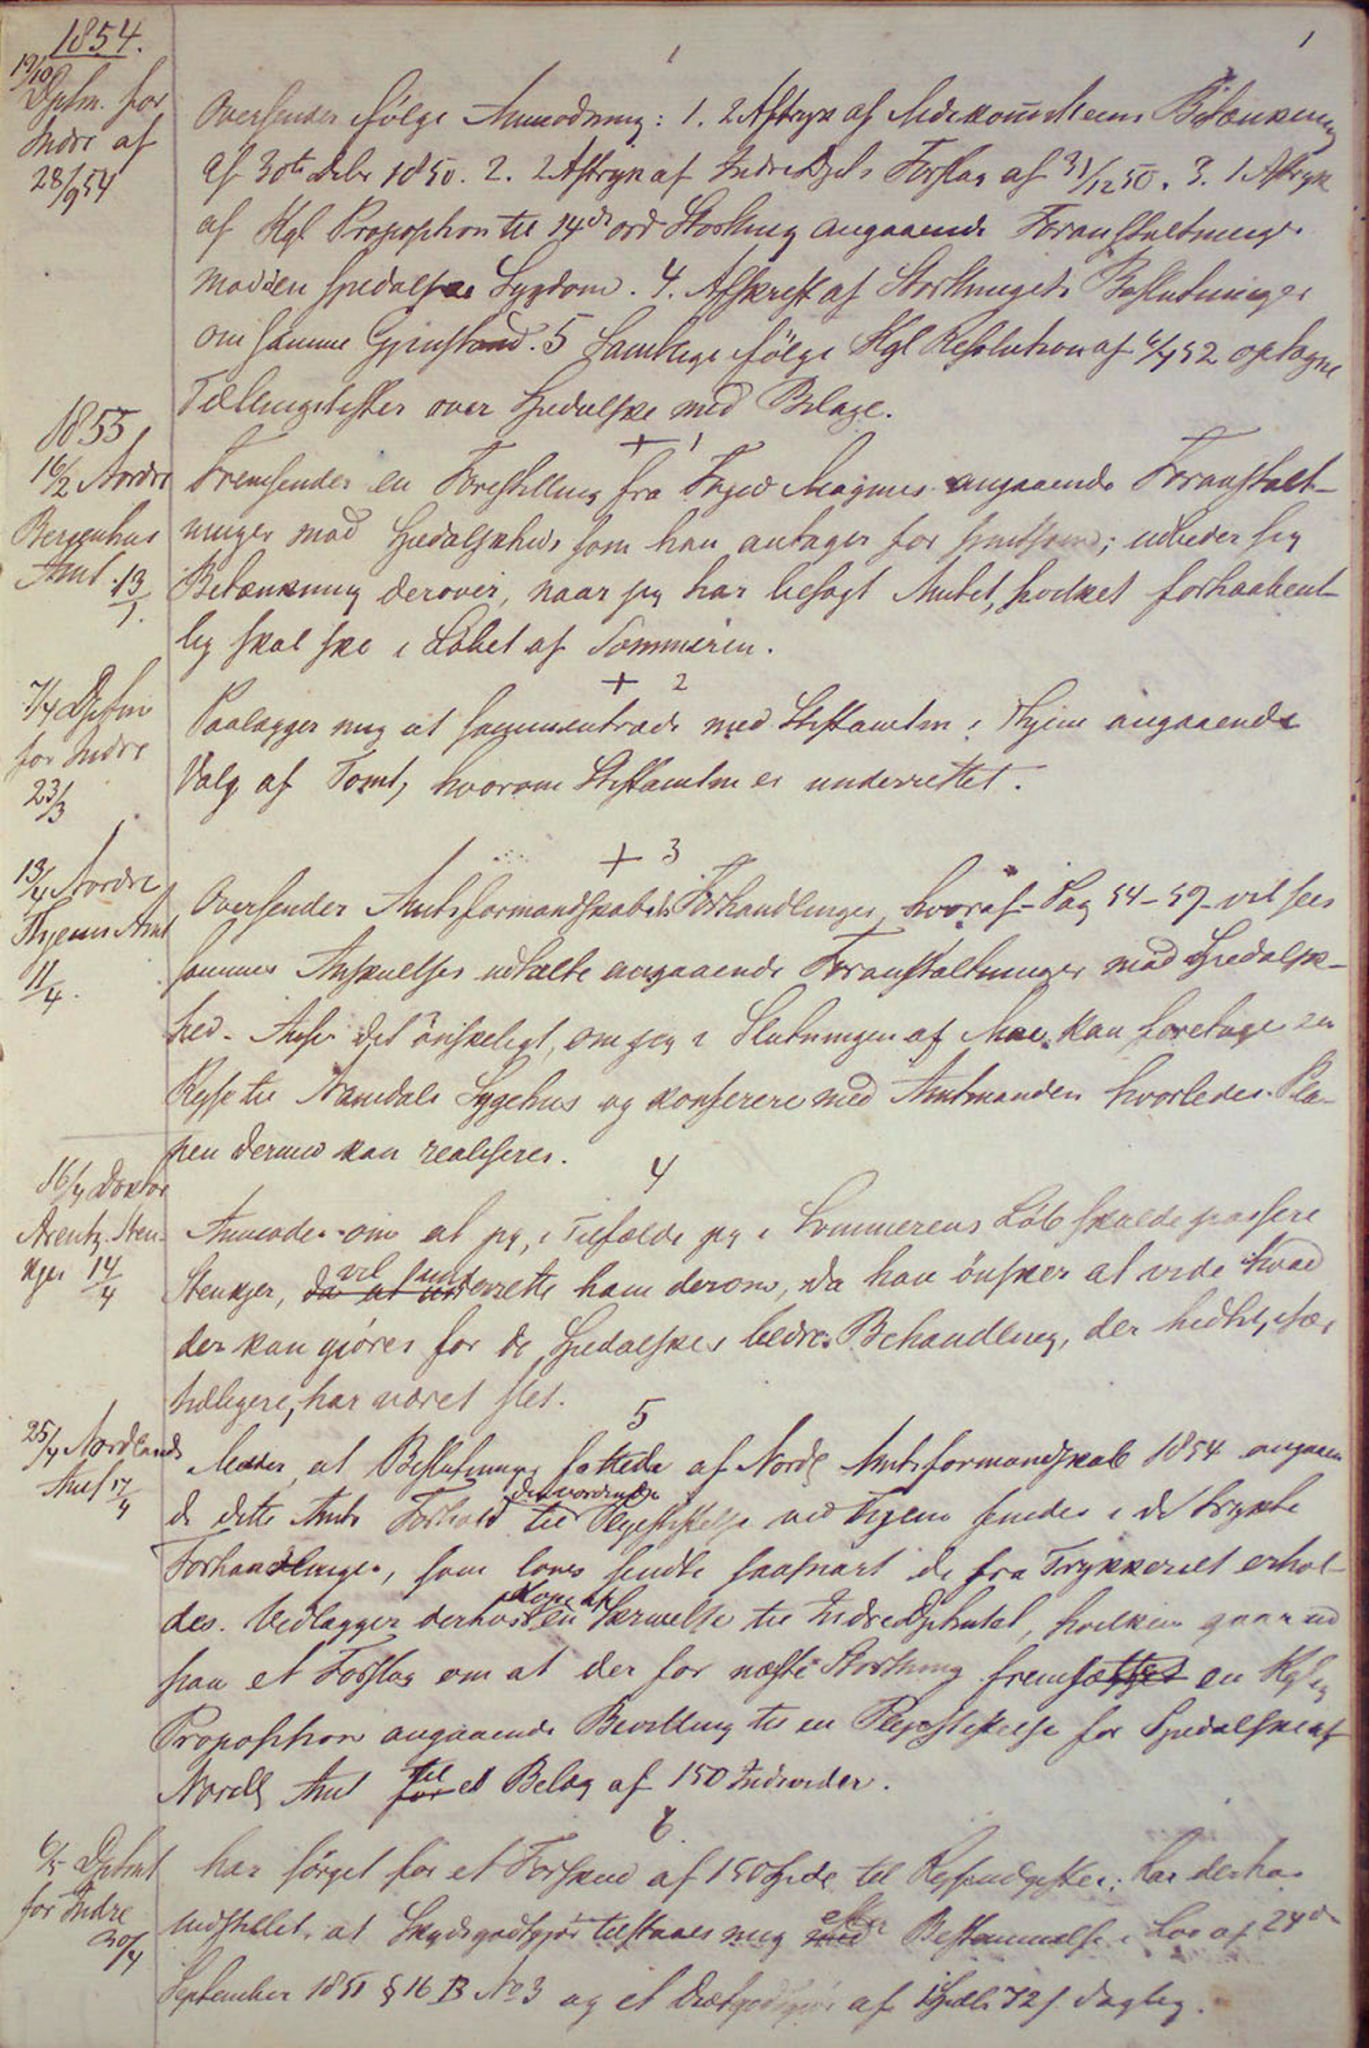 1854.
1
1
19/10
Dptm. for
Indre af
28/9 54
Oversender ifølge Anmodning: 1. 2 Aftryk af Medekommitteens Betænkning
af 30te Debr 1850. 2. 2 Aftryk af Indre Dpts Forslag af 31/12 50. 3. 1 Aftryk
af Kgl Proposition til 14de ord Storthing angaaende Foranstaltninger
mod den spedalske Sygdom. 4. Afskrift af Storthingets Beslutninger
om samme Gjenstand. 5 Samtlige ifølge Kgl Resolution af 52 optagne
Tællingslister over Spedalske med Bilage.
1855
+ 1
16/2 Nordre
Bergenhus
Amt 13/1.
Fremsender en Forestilling fra Foged Magnus angaaende Foranstalt-
ninger mod Spedalskhed, som han antager for ; udbeder sig
Betænkning derover, naar jeg har besøgt Amtet, hvilket forhaabent-
lig skal ske i Løbet af Sommeren.
+ 2
7/4 Dptm
for Indre
23/3
Paalægger mig at sammentræde med Stiftamtm i Thjem angaaende
Valg af Tomt, hvorom Stiftamtm er underrettet.
+ 3
13/4 Nordre
Thjems Amt
11/4.
Oversender Amtsformandskabets Forhandlinger, hvoraf Pag 54-59 vil sees
sammes Anskuelser udtalte angaaende Foranstaltninger mod Spedalsk-
hed. Anser det ønskeligt, om jeg i Slutningen af Mai kan foretage en
Rejse til Namdals Sygehus og konferere med Amtmanden hvorledes Pla-
nen dermed kan realiseres.
4
16/4 Doktor
Arentz. Sten-
kjer 14/4
Anmoder om at jeg, i Tilfælde jeg i Sommerens Løb skulde passere
Stenkjer, da vil at underrette ham derom, da han ønsker at vide hvad
der kan gjøres for de Spedalskes bedre Behandling, der hidtil, især
tidligere, har været slet.
5
25/4 Nordlands
Amt 17/4
Melder, at Beslutninger fattede af Nordl Amtsformandskab 1854 angaaen
de dette Amts Forhold til den vordende Plejestiftelse ved Thjem findes i de trykte
Forhandlinger, som loves sendte saasnart de fra Trykkeriet erhol-
des. Vedlægger derhos Kopi af en Skrivelse til Indre Dptmtet, hvilken gaar ud
paa et Forslag om at der for næste Storthing fremsættes en Kglig
Proposition angaaende Bevilling til en Plejestiftelse for Spedalske af
Nordl Amt for til et Belæg af 150 Individer.
6.
6/5 Dptmt
for Indre
30/4
har sørget for et Forskud af 150 Spdl til Rejseudgifter; har derhos
indstillet, at Skydsgodtgjør tilstaaes mig med efter Bestemmelse i Lov af 24de
September 1851 § 16 B No 3 og et Diætgodtgjør af 1 Spdl. 72 ß daglig.